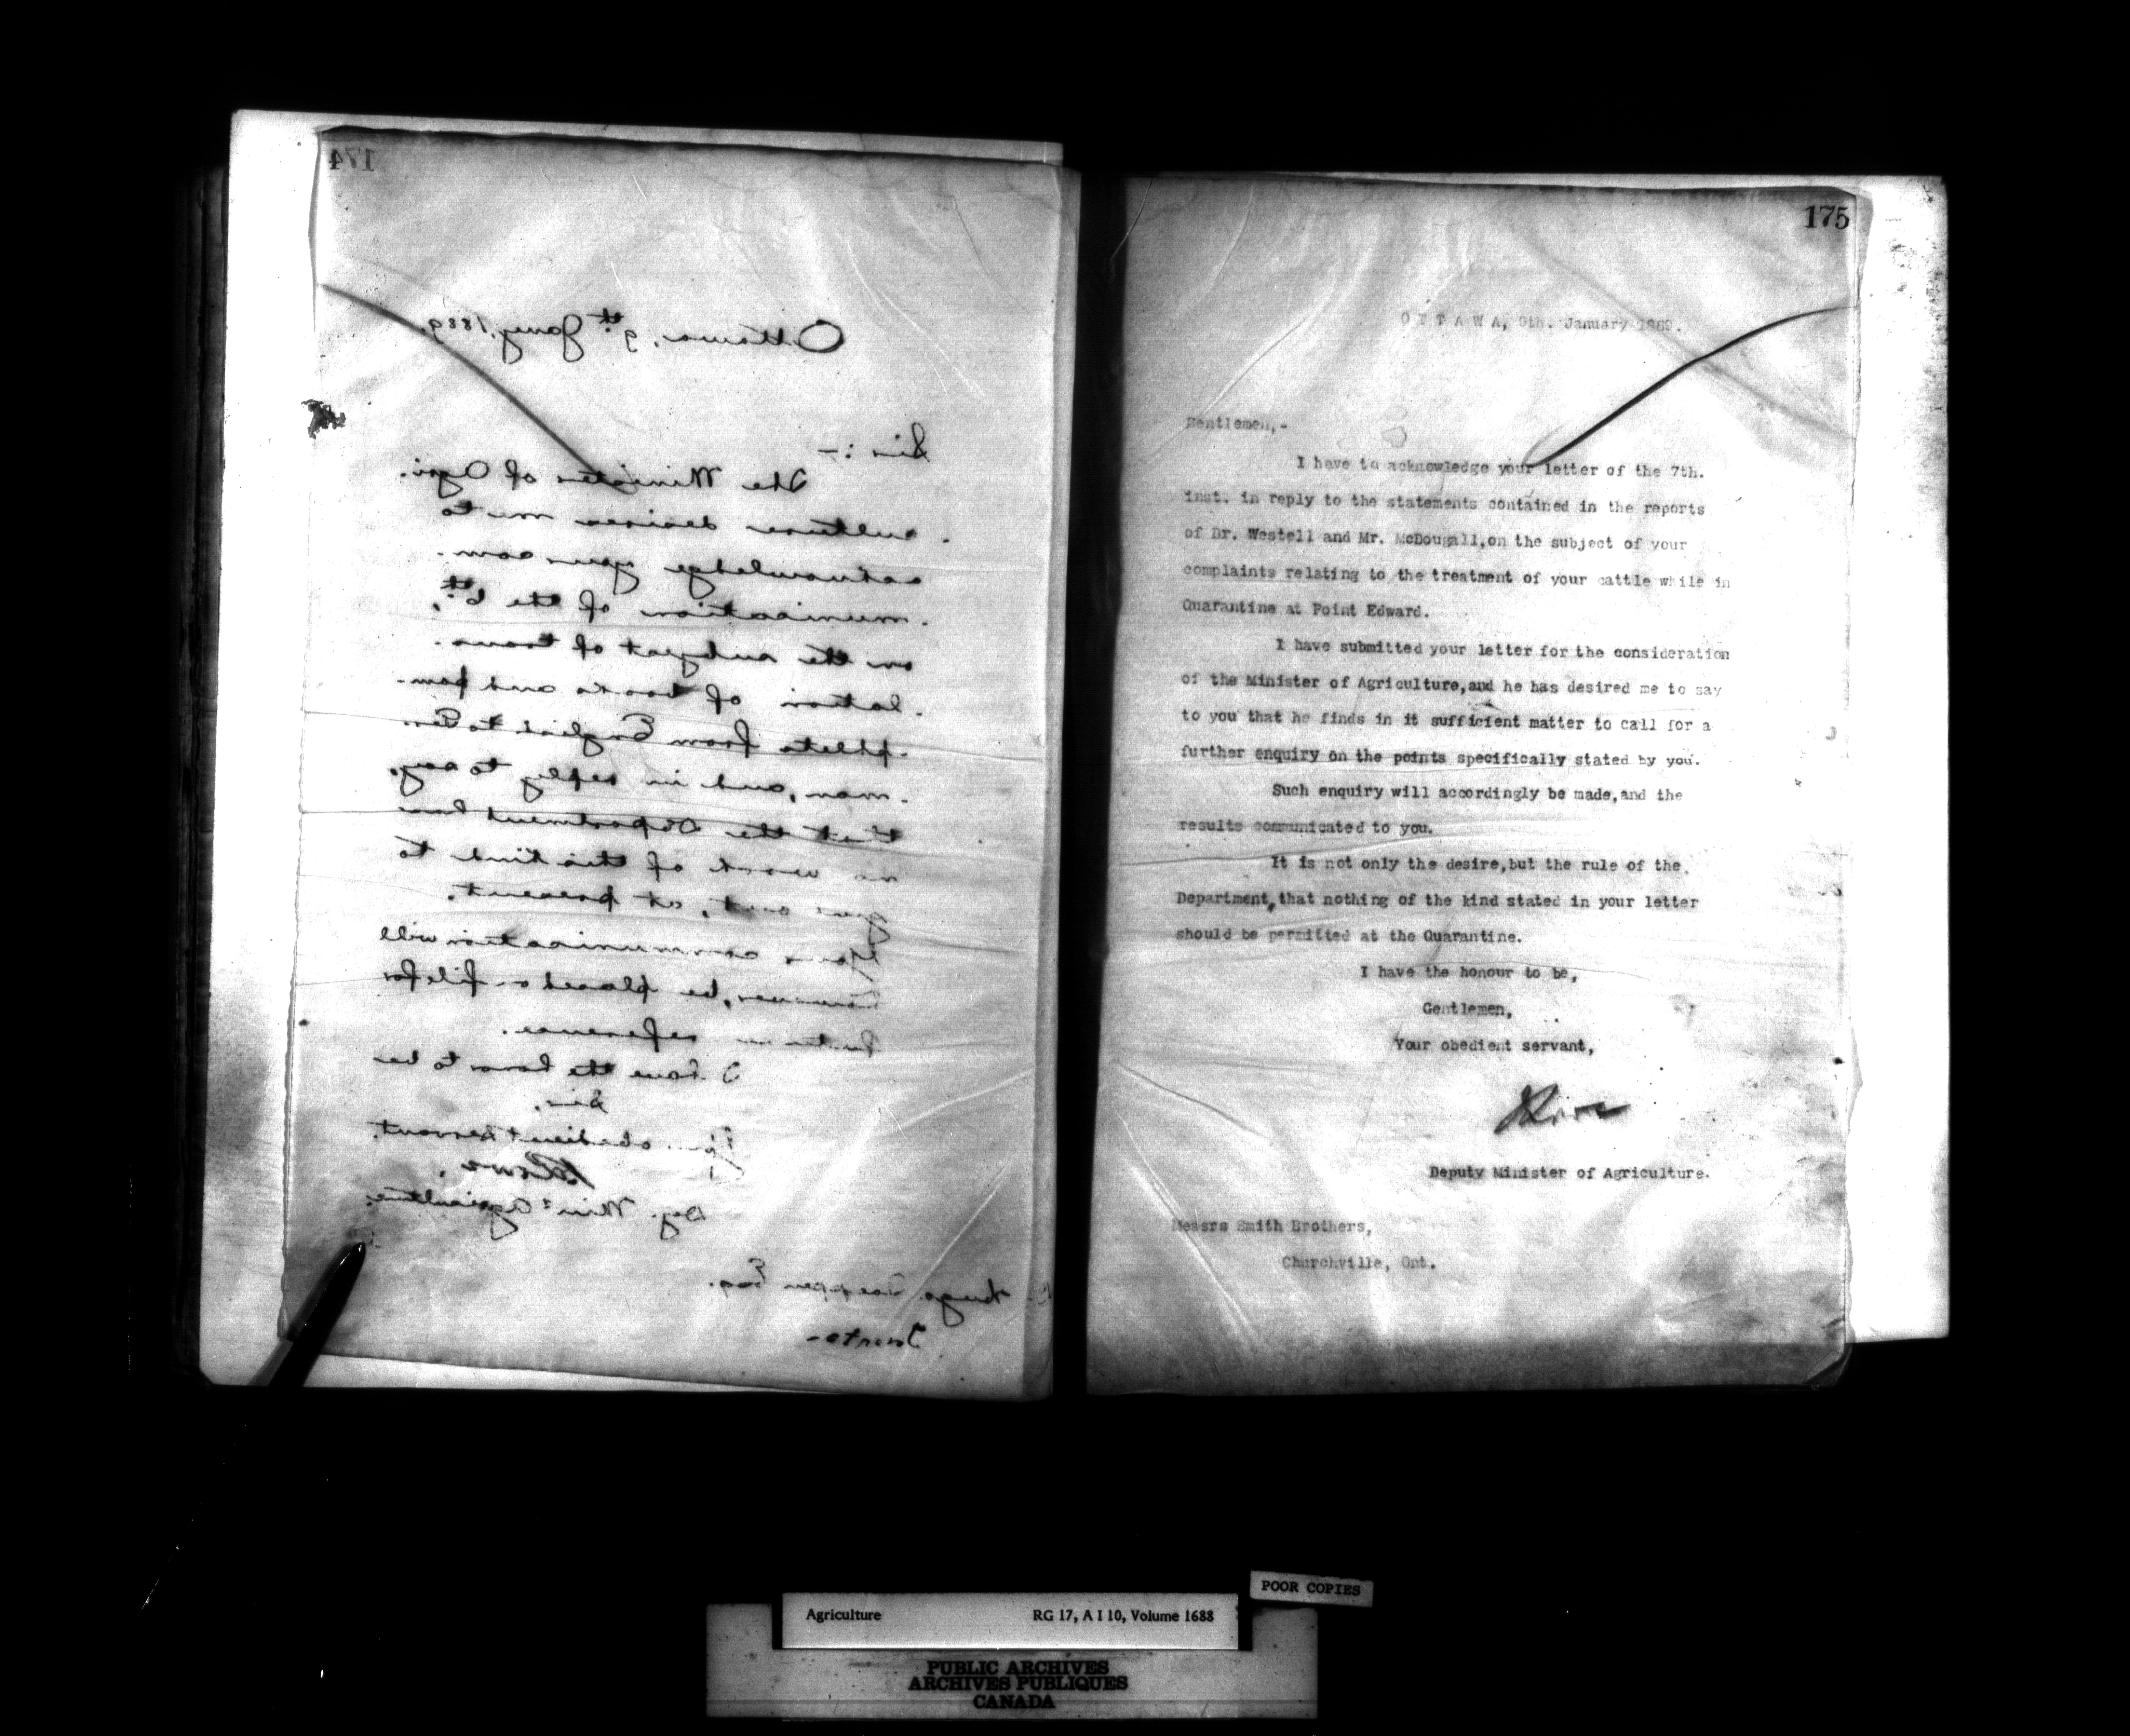 174
Ottawa, 9th Jany, 1889.
Sir :-
The Minister of Agri-
culture desires me to
acknowledge your com-
munication of the 6th,
on the subject of trans-
lation of books and pam-
phlets from English to Ger-
man, and in reply to say,
that the Department has
no work of this kind to
give out, at present.
Your communication will
however, be placed on file for
further reference.
I have the honor to be
Sir,
Your obedient servant,
Lowe,
Dep. Minr Agriculture.
Hugo Esq.
Toronto-
175
OTTAWA, 9th. January 1889.
Gentlemen,-
I have to acknowledge your letter of the 7th.
inst. in reply to the statements contained in the reports
of Dr. Westell and Mr. McDougall,on the subject of your
complaints relating to the treatment of your cattle while in
Quarantine at Point Edward.
I have submitted your letter for the consideration
of the Minister of Agriculture,and he has desired me to say
to you that he finds in it sufficient matter to call for a
further enquiry on the points specifically stated by you.
Such enquiry will accordingly be made,and the
results communicated to you.
It is not only the desire,but the rule of the
Department,that nothing of the kind stated in your letter
should be permitted at the Quarantine.
I have the honour to be,
Gentlemen,
Your obedient servant,
Deputy Minister of Agriculture.
Messrs Smith Brothers,
Churchville, Ont.
POOR COPIES
Agriculture RG 17, A I 10, Volume 1688
PUBLIC ARCHIVES
ARCHIVES PUBLIQUES
CANADA